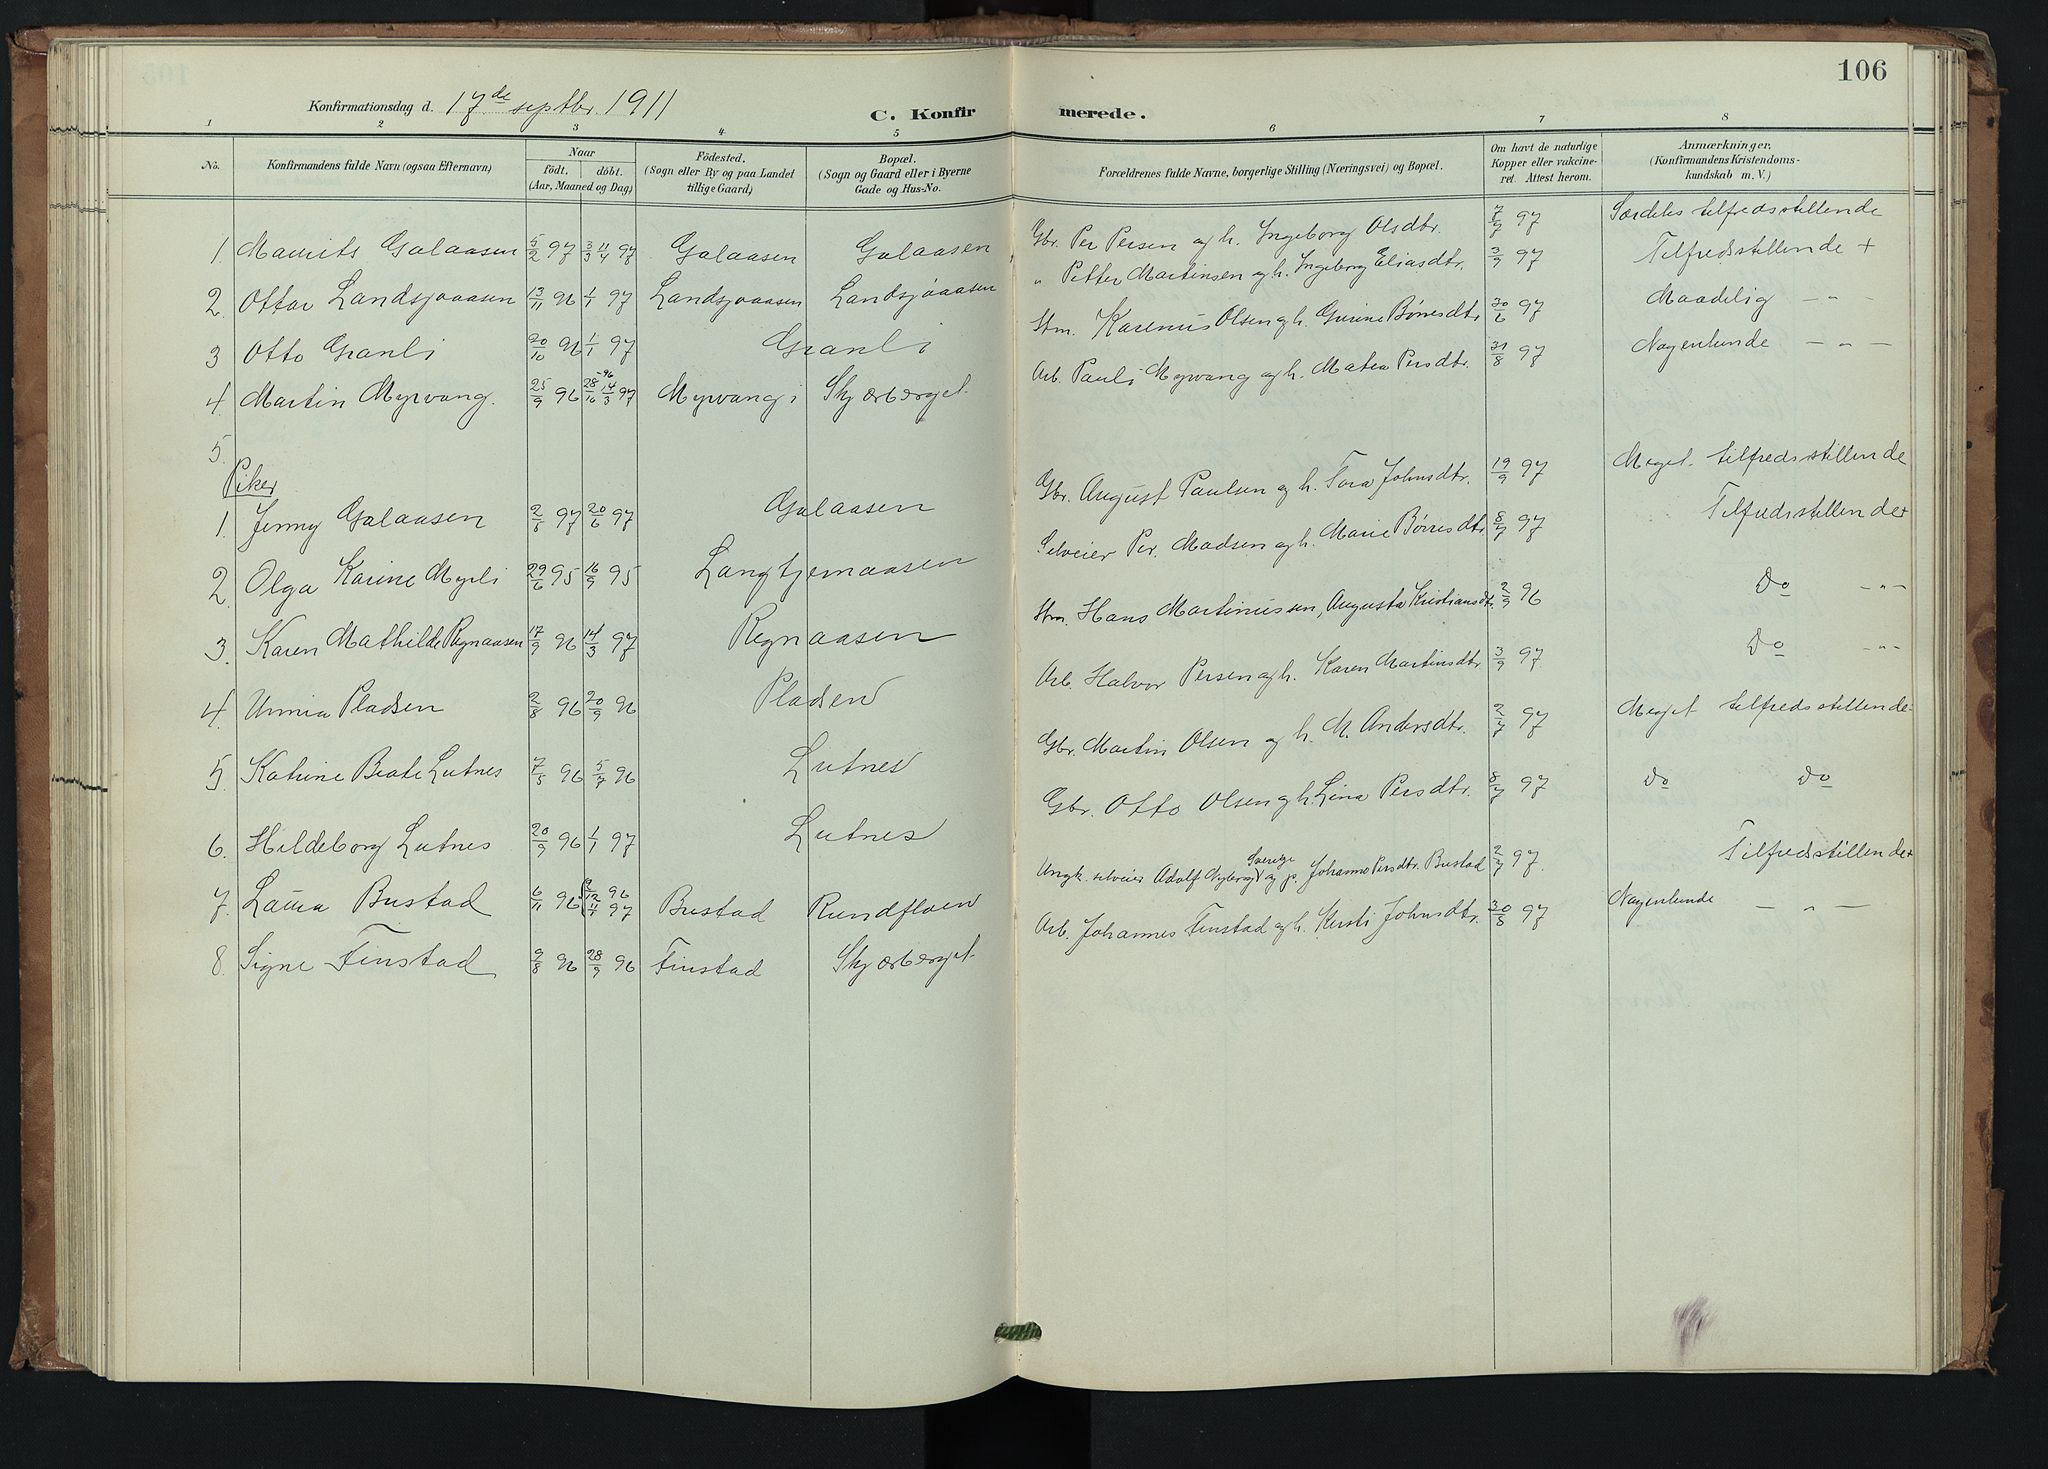 106
Konfirmationsdag d. 17de septbr. 1911
C. Konfirmerede.
1 2 3 4 5 6 7 8
No. Konfirmandens fulde Navn (ogsaa Efternavn) Naar födt. döbt. (Aar, Maaned og Dag) Födested. (Sogn eller By og paa Landet tillige Gaard) Bopæl. (Sogn og Gaard eller i Byerne Gade og Hus-No. Forældrenes fulde Navne, borgerlige Stilling (Næringsvei) og Bopæl. Om havt de naturlige Kopper eller vakcineret. Attest herom. Anmærkninger. (Konfirmandens Kristendomskundskab m. V.)
1. Maurits Galaasen 5/2 97 3/3 11/4 97 Galaasen Galaasen Gbr. Per Persen og h. Ingeborg Olsdtr. 7/7 97 Særdeles tilfredsstillende
2. Ottar Landsjøaasen 13/11 96 1/1 97 Landsjøaasen Landsjøaasen " Petter Martinsen og h. Ingeborg Eliasdtr. 3/9 97 Tilfredsstillende +
3 Otto Granli 20/10 96 1/1 97 Granli Stm. Karenus Olsen og h. Gurine Børresdtr 30/6 97 Maadelig - " -
4. Martin Myrvang. 25/9 96 28/10 -96 14/3 97 Myrvang i Skjærberget. Arb. Pauli Myrvang og h. Matea Persdtr. 31/8 97 Nogenlunde - " -
5.
Piker
1. Jenny Galaasen 2/5 97 20/6 97 Galaasen Gbr. August Paulsen og h. Tora Johnsdtr. 19/9 97 Meget tilfredsstillende
2. Olga Karine Myrli 29/6 95 16/9 95 Langtjernaasen Selveier Per. Madsen og h. Marie Børresdtr. 8/7 97 Tilfredsstillende+
3. Karen Mathilde Regnaasen 17/9 96 14/3 97 Regnaasen Stm. Hans Martinussen, Augusta Kristiansdtr. 2/9 96 Do - " -
4. Unnia Pladsen 2/8 96 20/9 96 Pladsen Arb. Halvor Persen og h. Karen Martinsdtr. 3/9 97 Do - " -
5 Katrine Beate Lutnes 7/5 96 5/7 96 Lutnes Gbr. Martin Olsen og h. M. Andersdtr. 2/7 97 Meget tilfredsstillende-
6. Hildeborg Lutnes 20/9 96 1/1 97 Lutnes Gbr. Otto Olsen og h. Lina Persdtr. 8/7 97 Do Do
7. Laura Bustad 6/11 96 2/12 96 11/7 97 Bustad Rundfloen Ungk. selveier Adolf Nyberg Sverige og p. Johanne Persdtr. Bustad 2/7 97. Tilfredsstillende+
8. Signe Finstad 2/8 96 28/9 96 Finstad Skjærberget. Arb. Johannes Finstad og h. Kersti Johnsdtr. 30/8 97 Nogenlunde - " -